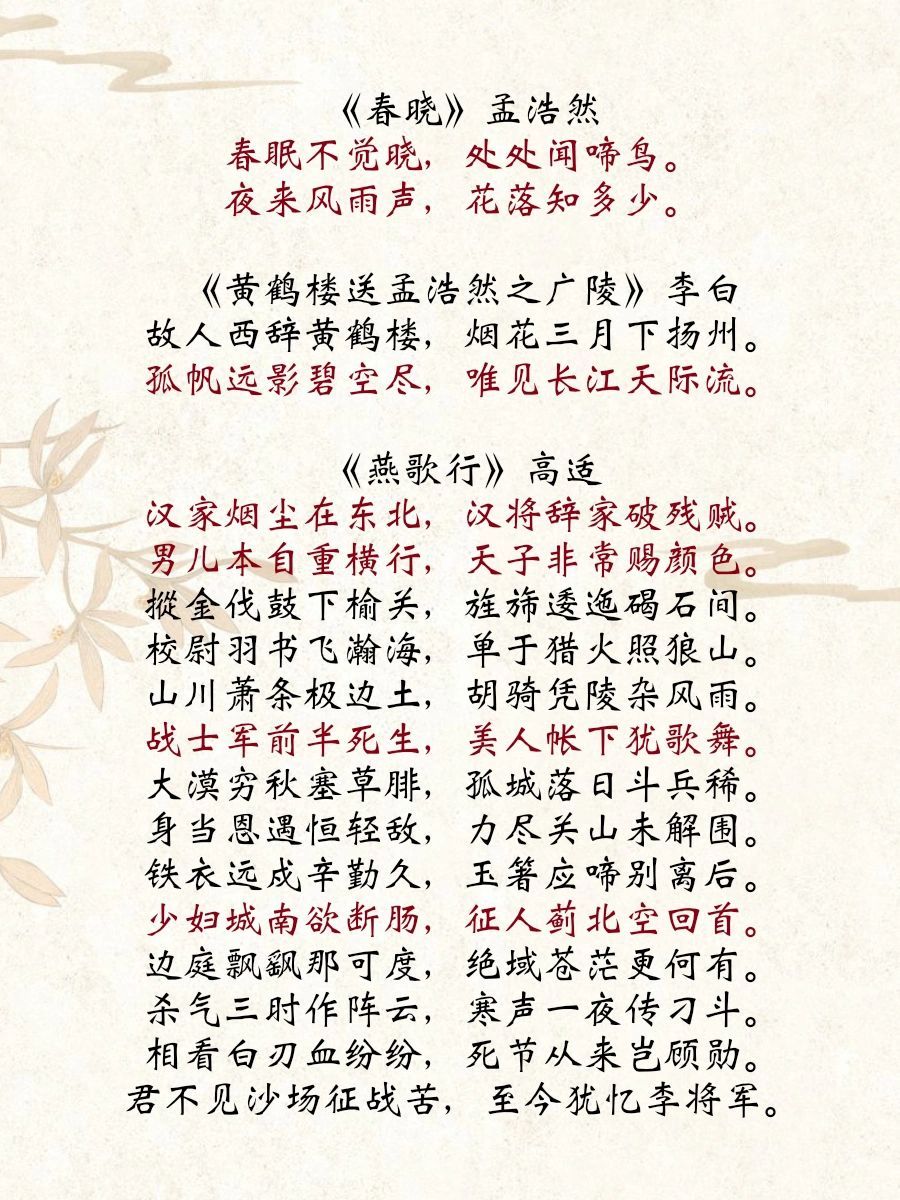 《春晓》孟浩然
春眠不觉晓，处处闻啼鸟。
夜来风雨声，花落知多少。
《黄鹤楼送孟浩然之广陵》李白
故人西辞黄鹤楼，烟花三月下扬州。
孤帆远影碧空尽，唯见长江天际流。
《燕歌行》高适
汉家烟尘在东北，汉将辞家破残贼。
男儿本自重横行，天子非常赐颜色。
摐金伐鼓下榆关，旌旆逶迤碣石间。
校尉羽书飞瀚海，单于猎火照狼山。
山川萧条极边土，胡骑凭陵杂风雨。
战士军前半死生，美人帐下犹歌舞。
大漠穷秋塞草腓，孤城落日斗兵稀。
身当恩遇恒轻敌，力尽关山未解围。
铁衣远戍辛勤久，玉箸应啼别离后。
少妇城南欲断肠，征人蓟北空回首。
边庭飘飖那可度，绝域苍茫更何有。
杀气三时作阵云，寒声一夜传刁斗。
相看白刃血纷纷，死节从来岂顾勋。
君不见沙场征战苦，至今犹忆李将军。